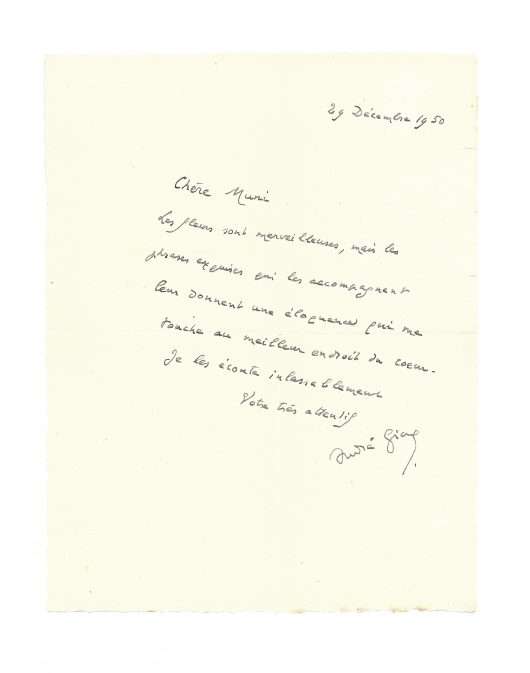 29 Décembre 1950
Chère Muni
Les fleurs sont merveilleuses, mais les
phrases exquises qui les accompagnent
leur donnent une éloquence qui me
touche au meilleur endroit du coeur.
Je les écoute inlassablement
Votre très attentif
André Gide